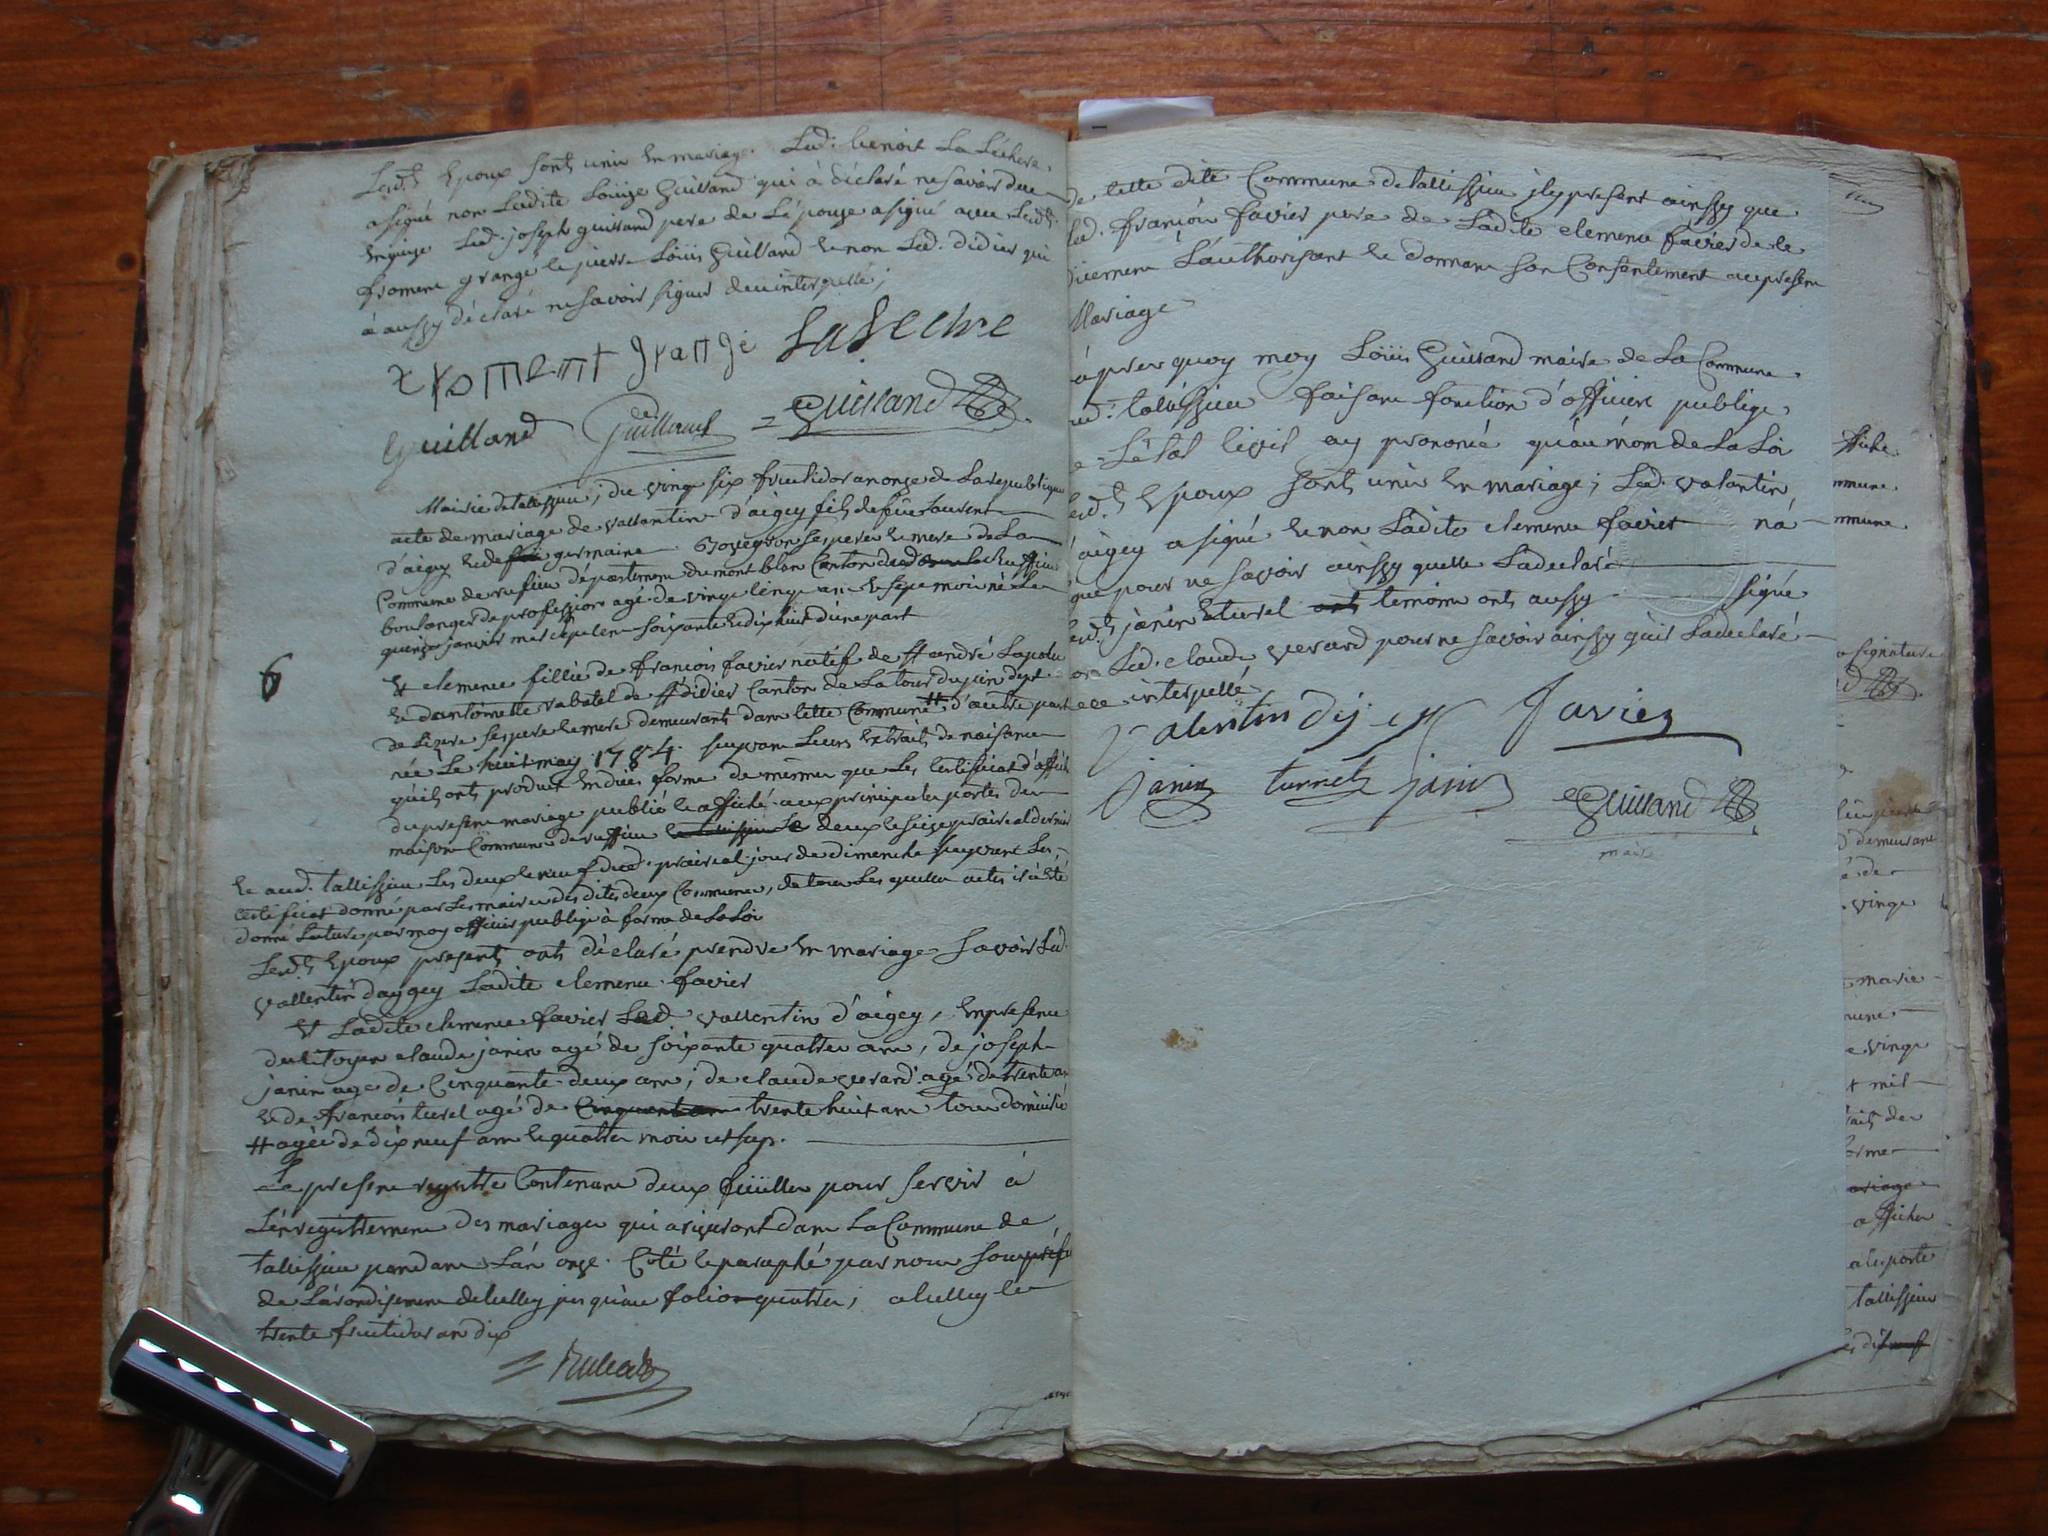 Lesd.ts Epoux sont unis En mariage. Led. benoit La Léchere
a signé non Ladite Loüise Guilland qui à déclaré ne savoir de ce
Enquise Led. joseph guilland pere de Lépouse a signé avec Lesd.ts
froment grange le pierre Loüis Guilland le non Led. didier qui
à aussy déclaré ne savoir signer de ce interpellé;
froment grange LaLechre
Guilland Guilland = Guilland
Mairie de talissieu; du vingt six fructidor an onze de La republique
acte de mariage de vallantin d'aigey fils de feu Laurent
d'aigey le de germaine ses pere le mere de La
Commune de rufieu département du mont blan Canton de Ruffieu
boulanger de profession agé de vingt cinq an le sept mois né Le
quinze janvier mil sept cent soixante le dix huit d'une part
6
Et clemence fillie de francois favier natif de st andré
le d'antoinette rabatel de st didier Canton de La tour du pin dept.
de L'izere ses pere le mere demeurants dans cette Commune # d'autre part
née Le huit may 1784. suyvant Leurs Extraits de naissance
qu'ils ont produit En düe forme de mesme que Les Certificat d'affiche
du present mariage publié le affiché aux principales portes de
maison Commune de ruffieu deux le seize prairial dernier
le aud. tallissieu Les deux le neuf dud. prairial jour de dimenche suyvant Les
certificat donné par Les maires des dites deux Communes, de tous Les quelles actes il a été
donné Lecture par moy officier publiqe à forme de La Loi
Lesd.ts Epoux presents onts déclaré prendre En mariage Savoir Led.
vallentin d'aygey Ladite clemence favier
Et Ladite clemence favier Led. vallentin d'aigey, En presence
du Citoyen claude janin agé de soixante quattre ans, de joseph
janin agé de Cinquante deux ans; de claude verard agé de trente an
le de francois turel agé de Cinquante an trente huit ans tous domicilié
# agée de dix neuf ans le quattre mois
Le present registre Contenant deux feüilles pour servir à
L'enregistrement des mariages qui ariveront dans La Commune de
tallissieu pendant L'an onze. Coté le paraphé par nous souspréfet
de L'arondissement de belley jusqu'au folio quattre; a belley le
trente fructidor an dix
de cette dite Commune de tallissieu icy present ainssy que
Led. francois favier pere de Ladite clemence favier de le
L'authorisant le donnant son Consentement au present
Mariage
aprés quoy moy Loüis Guilland maire de La Commune
dud. talissieu faisant fonction d'officier publiqe
de L'état Civil ay prononcé qu'au nom de La Loi
Lesd.ts Epoux sont unis En mariage; Led. valantin
d'aigey a signé le non Ladite clemence favier n'a
signé pour ne savoir ainssy quelle La declaré
Lesd.ts janin le turel ont temoins onts aussy signé
non Led. claude verard pour ne savoir ainssy qu'il La declaré
de ce interpellé
Valentin Favier
janin turrel janin Guilland
maire
ffiche
mmune
mmune
signature
demeurant
é de
vingt
marie
mune
vingt
t mil
forme
mariage
afficher
a la porte
tallissieu